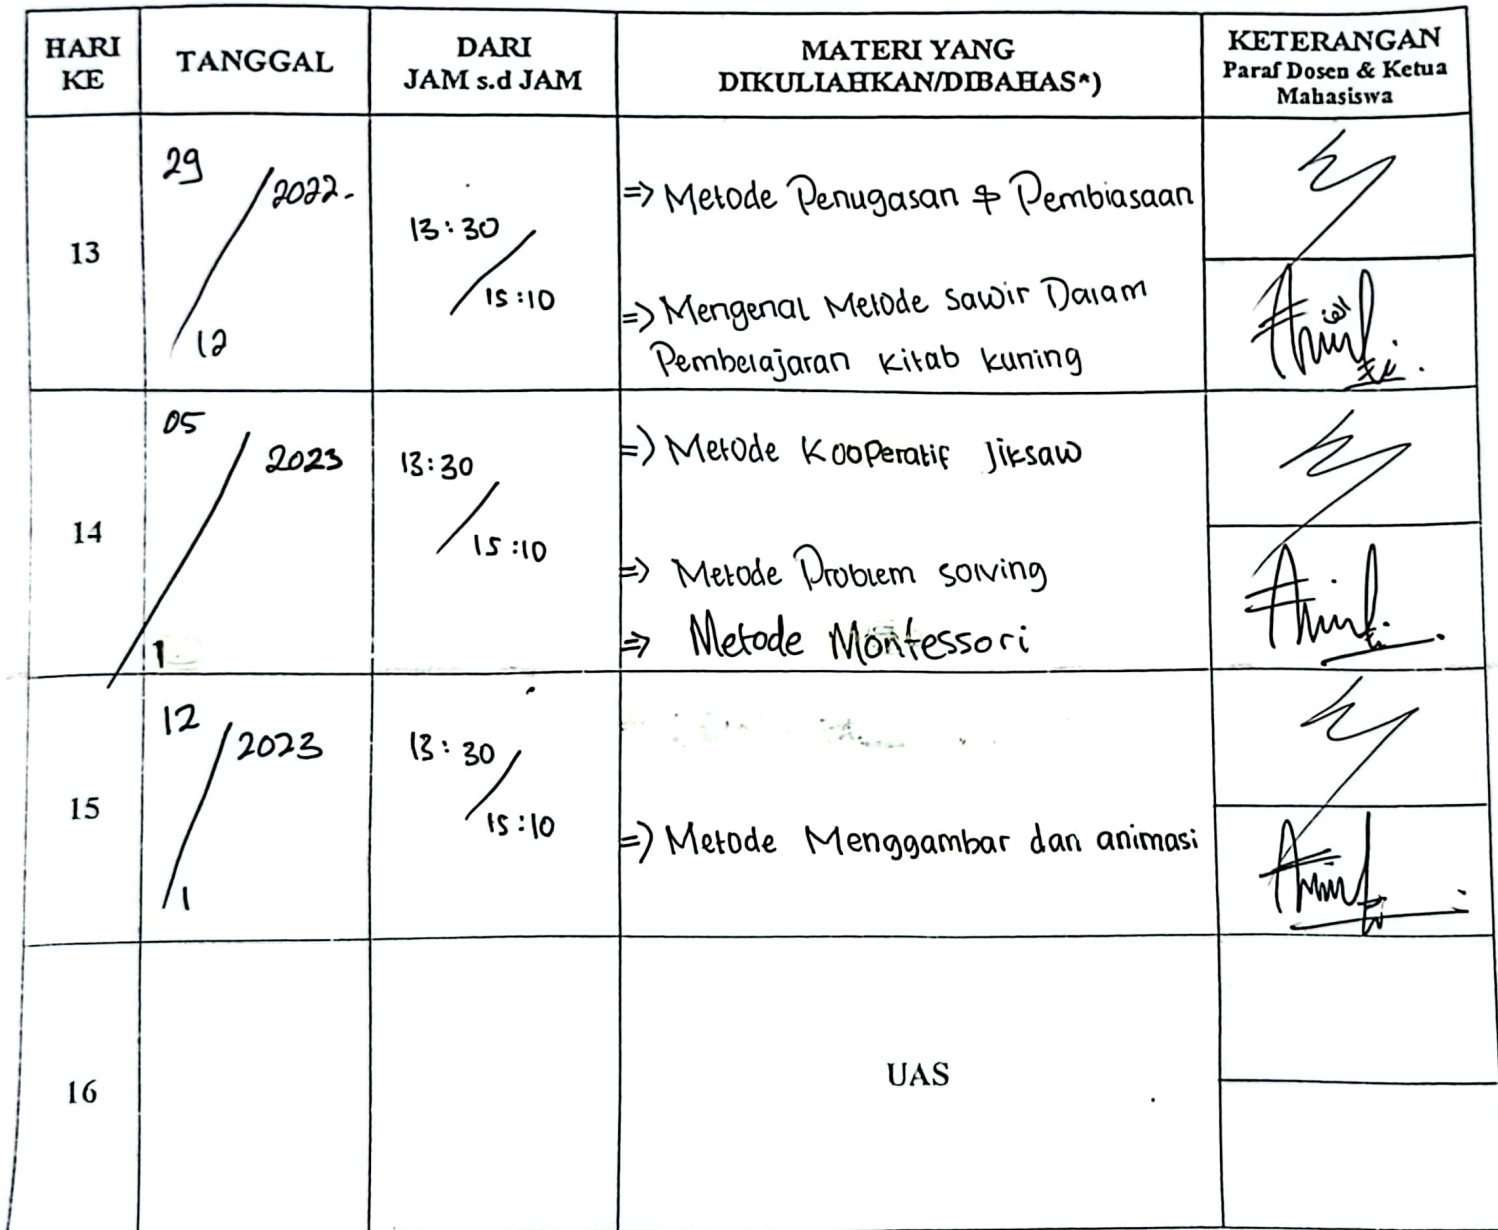 HARI KE
TANGGAL
DARI
JAM s.d JAM
MATERI YANG
DIKULIAHKAN/DIBAHAS*)
KETERANGAN
Paraf Dosen & Ketua
Mahasiswa
13
29/12 2022-
13:30/15:10
=> Metode Penugasan & Pembiasaan
=> Mengenal Metode Sawir Dalam
Pembelajaran kitab kuning
14
05/1 2023
13:30/15:10
=> Metode Kooperatif Jiksaw
=> Metode Problem solving
=> Metode Montessori
15
12/1 2023
13:30/15:10
=> Metode Menggambar dan animasi
16
UAS